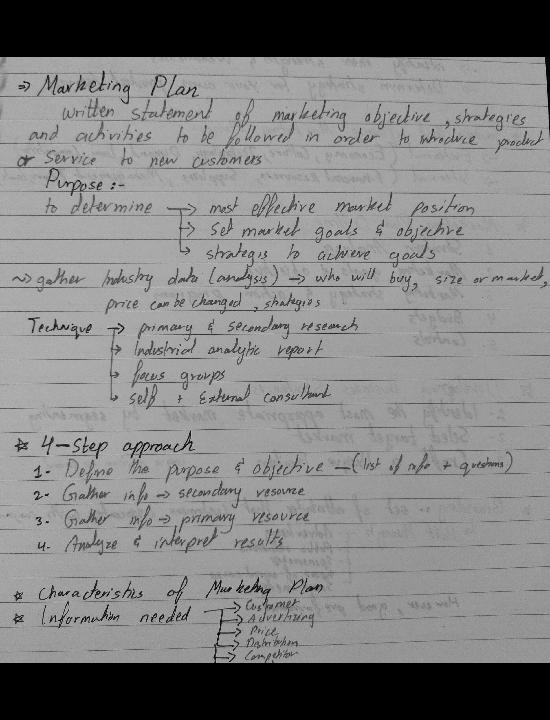 ⇒ Marketing Plan
written statement of marketing objective, strategies
and activities to be followed in order to introduce product
or service to new customers
Purpose :-
to determine → most effective market position
→ set market goals & objective
→ strategis to achieve goals
~> gather Industry data (analysis) → who will buy, size or market,
price can be changed, strategies
Technique → primary & secondary research
→ Industrial analytic report
→ focus groups
→ self + External consultant
* 4-Step approach
1- Define the purpose & objective — (list of info + questions)
2- Gather info → secondary resource
3- Gather info → primary resource
4- Analyze & interpret results
* Characteristics of Marketing Plan
* Information needed → Customer
→ Advertizing
→ Price
→ Distribution
→ Competitor